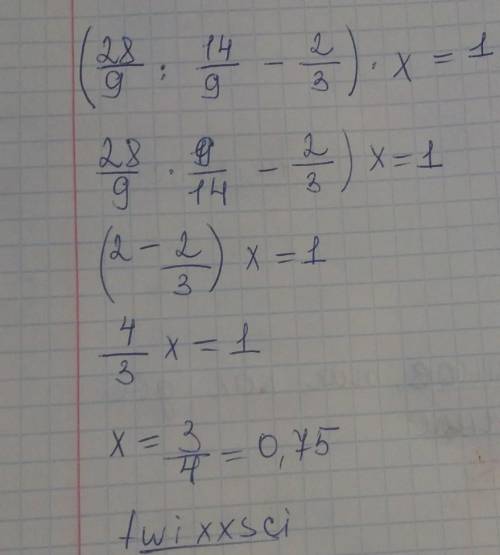 (28/9 : 14/9 - 2/3) · x = 1
28/9 · 9/14 - 2/3) x = 1
(2 - 2/3) x = 1
4/3 x = 1
x = 3/4 = 0,75
twixxsci